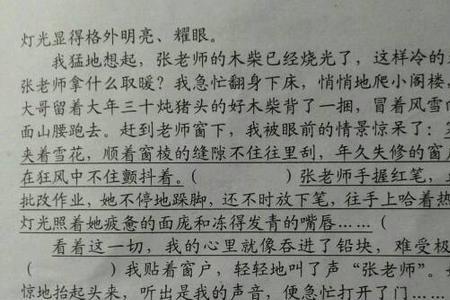 灯光显得格外明亮、耀眼。
我猛地想起，张老师的木柴已经烧光了，这样冷的
张老师拿什么取暖？我急忙翻身下床，悄悄地爬小阁楼，
大哥留着大年三十炖猪头的好木柴背了一捆，冒着风雪向
面山腰跑去。赶到老师窗下，我被眼前的情景惊呆了：
夹着雪花，顺着窗棱的缝隙不住往里刮，年久失修的窗户
在狂风中不住颤抖着。（ ）张老师手握红笔，
批改作业，她不停地跺脚，还不时放下笔，往手上哈着热
灯光照着她疲惫的面庞和冻得发青的嘴唇……（
看着这一切，我的心里就像吞进了铅块，难受极
（ ）我贴着窗户，轻轻地叫了声“张老师”。
惊地抬起头来，听出是我的声音，便急忙打开了门……